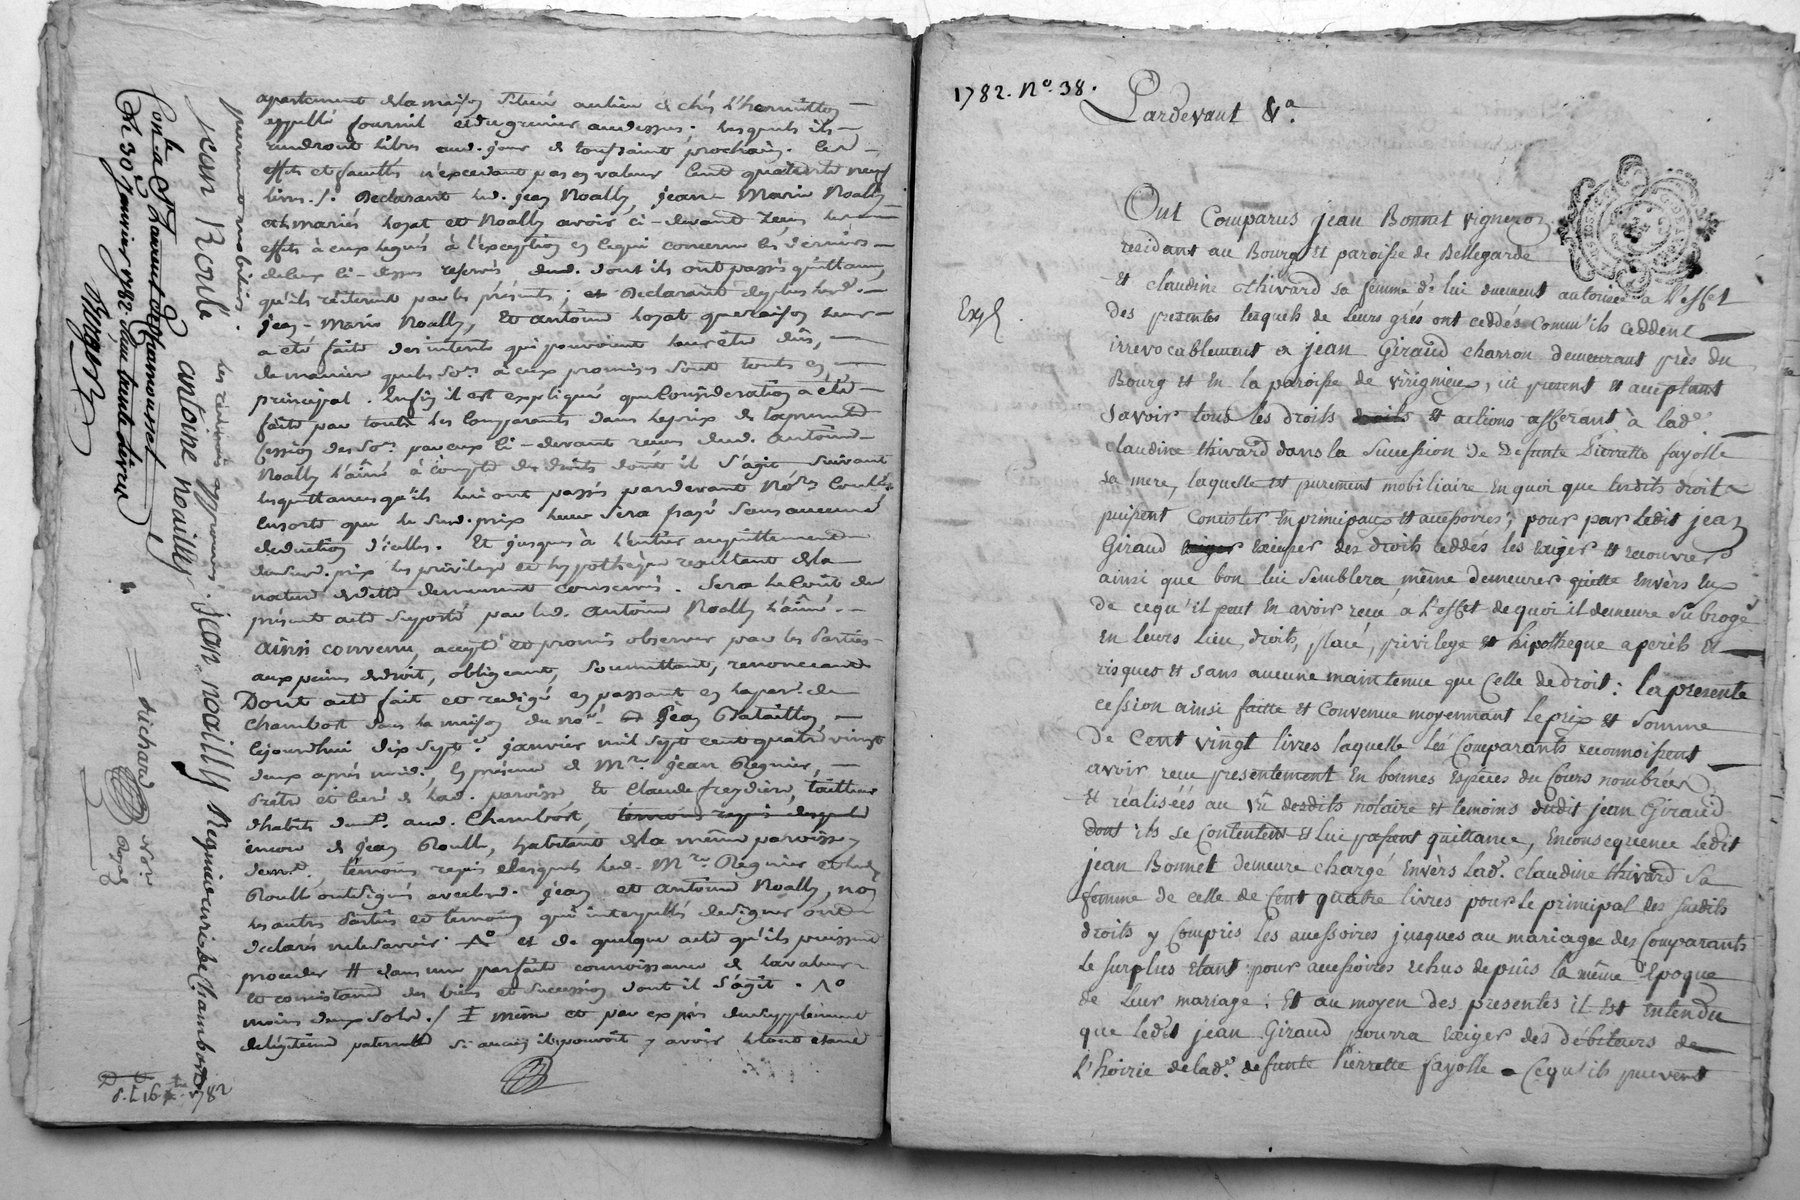 apartement de la maison située au lieu de chés L'hermitton
appellé fournil et du grenier au dessus; lesquels ils
rendront libres aud. jour de toussaint prochain. Les
effets et facultés n'excedant pas en valeur Cent quatre vingt neuf
livres ./. Declarant led. jean Noally, jean Marie Noally
et mariés loyat et Noally avoir ci-devant reçu les
effets à eux legués à l'exception en ce qui concerne les derniers
de ceux ci-dessus reservés dud. dont ils ont passés quittance
qu'ils réiterent par les présentes; et Declarant de plus lesd.
jean-Marie Noally, et antoine loyat que raison leur
a été faite des interets qui pouvoient leur être dûs,
de maniere que les so.es à eux promises sont toutes en
principal. Enfin il est expliqué que consideration a été
faite par toutes les Comparants dans le prix de la presente
Cession des so.es par eux ci-devant reçues dud. antoine
Noally l'aîné à compte des droits dont il s'agit suivant
les quittances qu'ils lui ont passés pardevant No.re
Ensorte que le susd. prix leur sera payé sans aucune
deduction d'icelles. Et jusques à l'entier acquittement
dud. prix les privilege et hypothèque resultant de la
nature de dette demeurent conservés. Sera le Coût du
présent acte suporté par led. antoine Noally l'aîné.
ainsi convenu, accepté et promis observer par les Parties
aux peines de droit, obligeant, soumettant, renonceant
Dont acte fait et redigé en passant en la par.e de
Chambost dans la maison du no.é Jean Bataillon,
cejourdhui dix sept.e janvier mil sept cent quatre vingt
deux après midi, en présence de M.re jean Regnier,
Prêtre et Curé de lad. paroisse et Claude freydiere, tailleur
d'habits dem.t aud. Chambost,
encore de jean Roulle, habitant de la même paroisse
dem.t, témoins requis desquels led. M.re Regnier et led.
Roulle ont signés avec lesd. jean et antoine Noally, non
les autres Parties et temoins qui interpellés de signer ont
declarés ne le savoir. et de quelque acte qu'ils puissent
proceder # dans une parfaite connoissance de la valeur
et consistance des biens et succession dont il s'agit.
moins deux sols ./. même et par exprès du supplément
de legitime paternelle si aucun il pouvoit y avoir
purement mobiliers.
les renvois approuvés.
jean Roulle antoine noailly jean noailly Regnier curé de Chambost
Richard
Con.lé a S.t Laurent de Chamousset
Le 30.e Janvier 1782 Reçu trente livres
Royer
1782
1782. N.o 38.
Pardevant &.a
Ont Comparus jean Bonnet vigneron
residant au Bourg et paroisse de Bellegarde
et claudine thivard sa femme de lui duement autorisée a l'effet
Des presentes lesquels de leurs grés ont ceddés comm'ils ceddent
irrevocablement a jean Giraud charron demeurant près du
Bourg et En la paroisse de virignieux, ici present et acceptant
savoir tous les droits droits et actions afferant à lad.e
Claudine thivard dans la Succession de defunte Pierrette fayolle
sa mere, laquelle est purement mobiliaire En quoi que lesdits droit
puissent Consister En principaux et accessoires; pour par Ledit jean
Giraud exiger exciper des droits ceddés les Exiger et recouvrer
ainsi que bon lui Semblera, même demeurer quitte Envèrs Eux
De cequ'il peut En avoir reçu, a L'effet de quoi il demeure Subrogé
En leurs lieu, droits, place, privilege et hipotheque a perils et
risques et sans aucune maintenue que Celle de droit: la presente
cession ainsi faitte et Convenue moyennant Le prix et Somme
De Cent vingt livres laquelle Les Comparants reconnoissent
avoir reçu presentement En bonnes Espèces du Cours nombrées
et réalisées au vû desdits notaire et temoins dudit jean Giraud
dont ils se Contentent et lui passent quittance, Enconsequence Ledit
jean Bonnet demeure chargé Envèrs lad.e Claudine thivard Sa
femme de celle de Cent quatre livres pour le principal des susdits
droits y Compris Les accessoires jusques au mariage des Comparants
Le surplus etant pour accessoires echus depuis la même Epoque
de Leur mariage: Et au moyen des presentes il Est Entendu
que ledit jean Giraud pourra Exiger des débiteurs de
L'hoirie de lad.e defunte Pierrette fayolle Cequ'ils peuvent